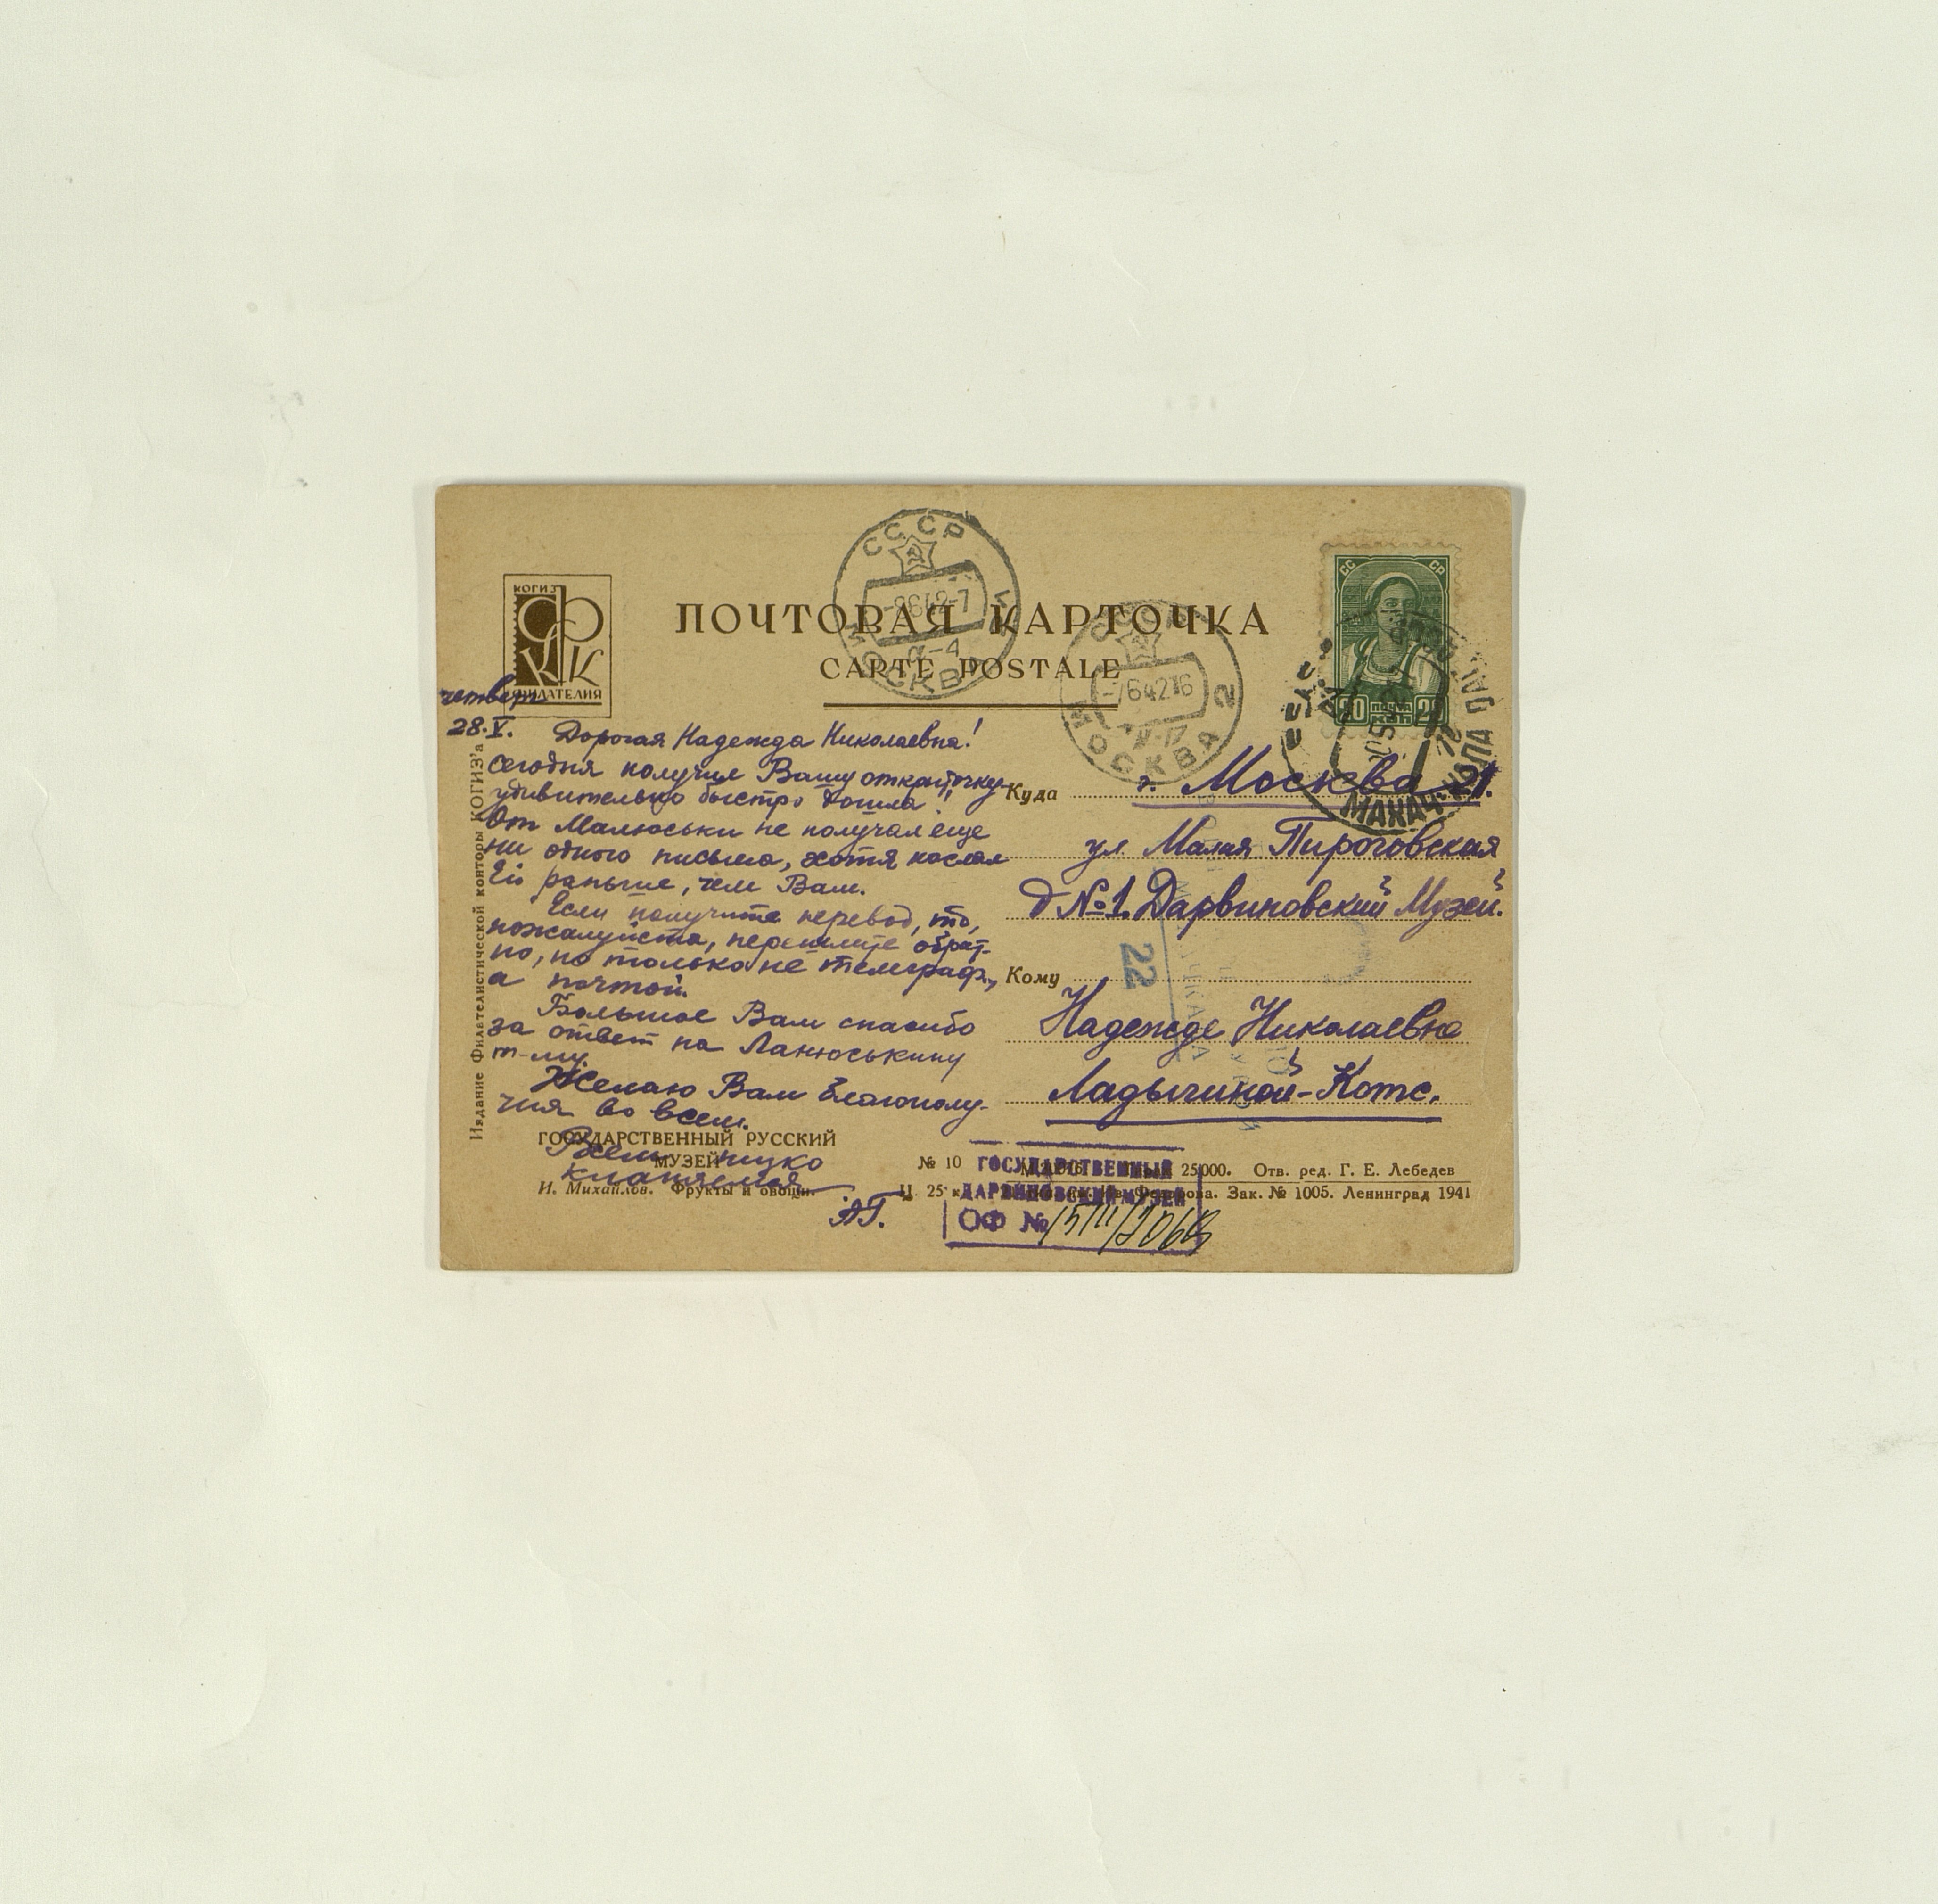 СССР
МОСКВА
КОГИЗ
ФИЛАТЕЛИЯ
ПОЧТОВАЯ КАРТОЧКА
CARTE POSTALE
МОСКВА 2
СС СР
20 ПОЧТА КОП 20
МАХАЧ-КАЛА ДАГ
четверг
28.V. Дорогая Надежда Николаевна!
сегодня получил Вашу открыточку
удивительно быстро дошла!
От Малюськи не получал еще
ни одного письма, хотя послал
Ей раньше, чем Вам.
Если получите перевод, то,
пожалуйста, перешлите обрат-
но, но только не телеграф.,
а почтой.
Большое Вам спасибо
за ответ на Ланюськину
т-му.
Желаю Вам благополу-
чия во всем.
Всем низко
кланяемся
АГ.
Куда г. Москва 21.
ул Малая Пироговская
д №1. Дарвиновский Музей.
22
Кому
Надежде Николаевне
Ладыгиной-Котс.
Издание Филателистической конторы КОГИЗ'а
ГОСУДАРСТВЕННЫЙ РУССКИЙ
МУЗЕЙ
И. Михайлов. Фрукты и овощи.
№ 10 25000. Отв. ред. Г. Е. Лебедев
Ц. 25 к. Зак. № 1005. Ленинград 1941
ГОСУДАРСТВЕННЫЙ
ДАРВИНОВСКИЙ МУЗЕЙ
ОФ №